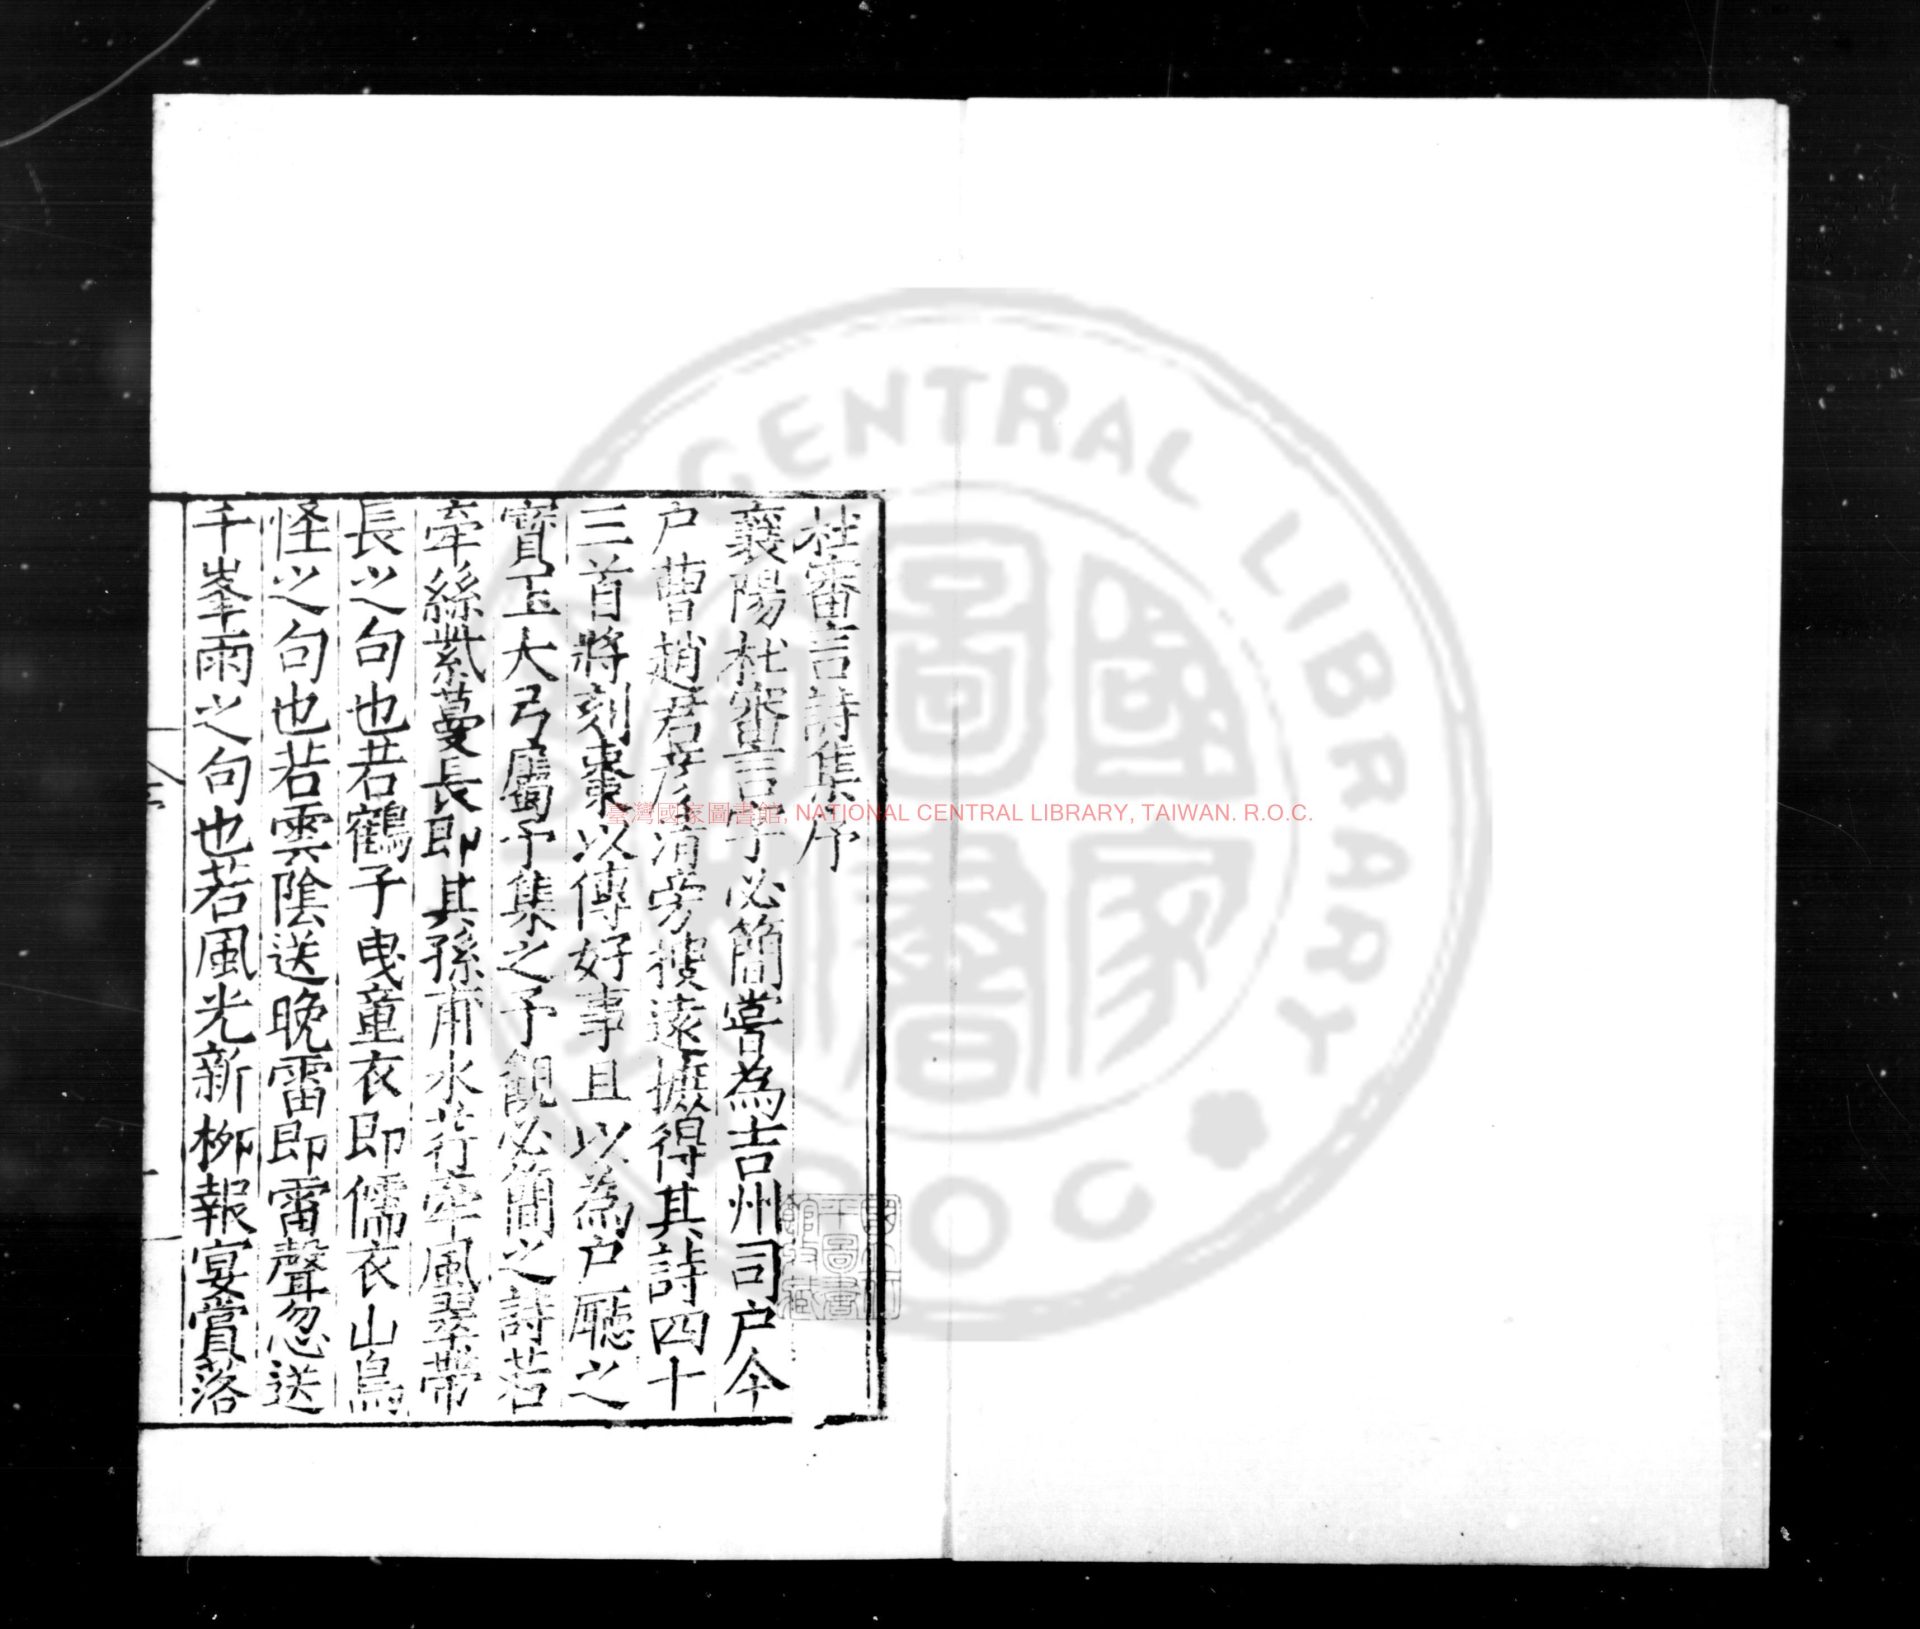 杜審言詩集序
襄陽杜審言字必簡嘗為吉州司户今
户曹趙君彦清旁搜遠摭得其詩四十
三首將刻棗以傳好事且以為户廳之
寳玉大弓屬予集之予觀必簡之詩若
牽絲紫蔓長即其孫甫水荇牽風翠帶
長之句也若鶴子曵童衣即儒衣山鳥
怪之句也若雲陰送晚雷即雷聲忽送
千峯雨之句也若風光新柳報宴賞落
臺灣國家圖書館, NATIONAL CENTRAL LIBRARY, TAIWAN. R.O.C.
CENTRAL LIBRARY
R O C
國家圖書